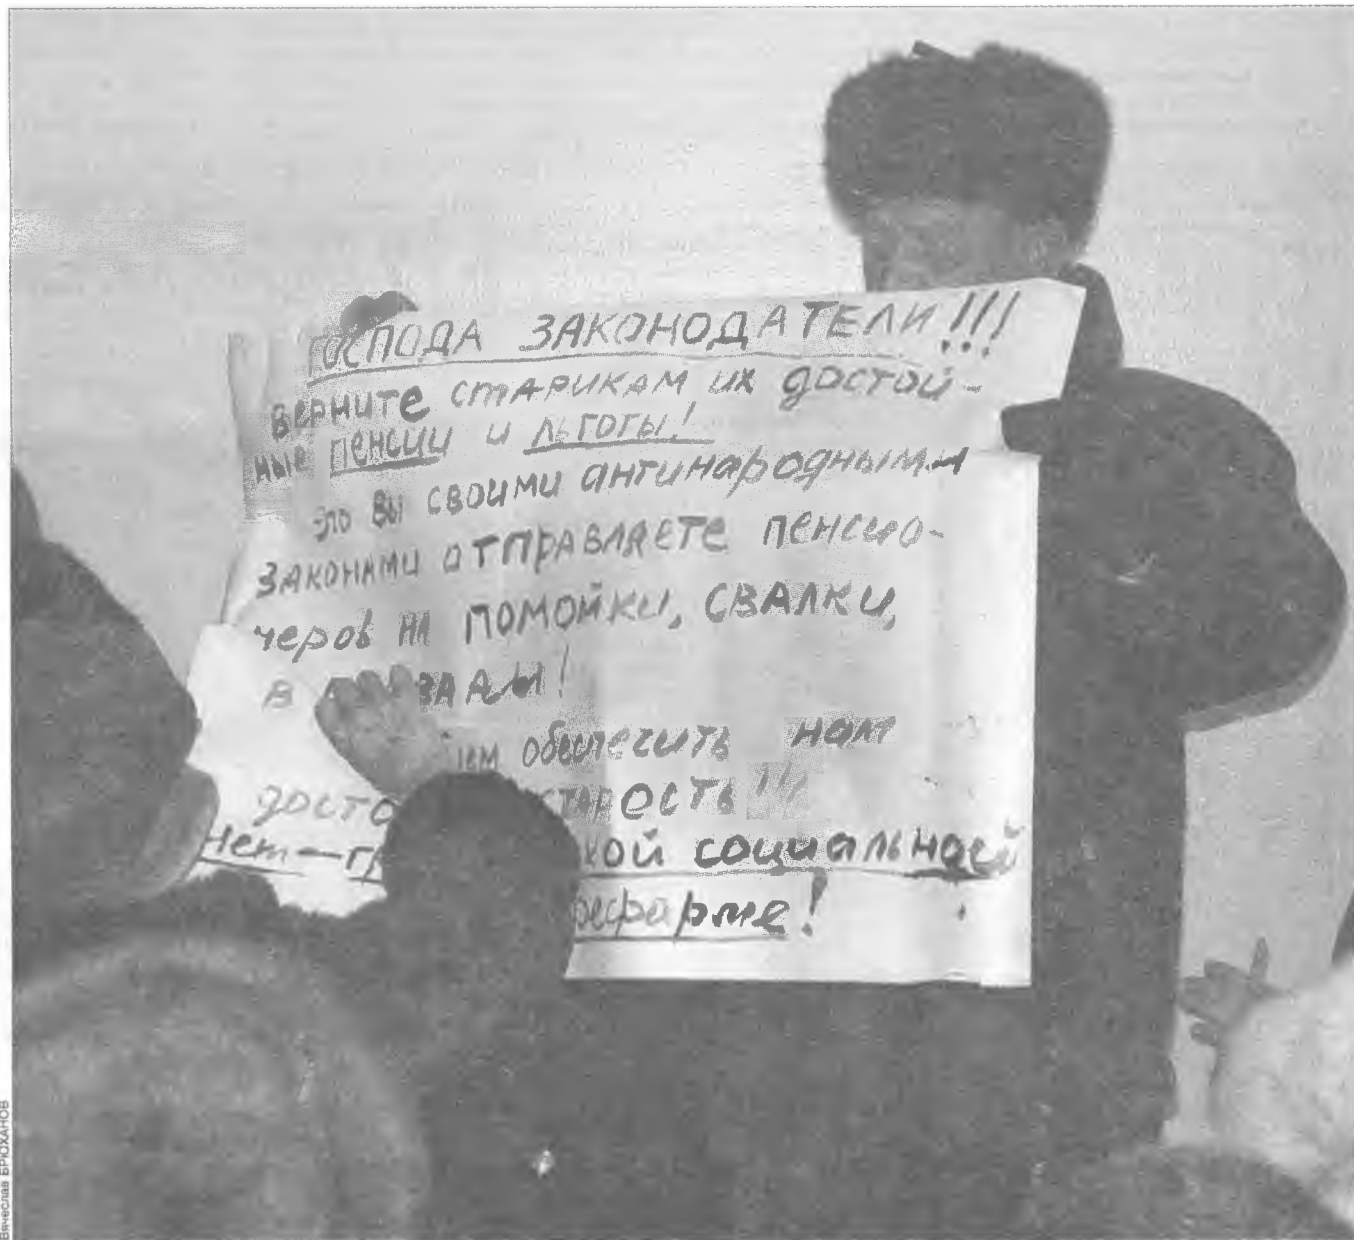 ГОСПОДА ЗАКОНОДАТЕЛИ!!!
ВЕРНИТЕ СТАРИКАМ ИХ ДОСТОЙ-
НЫЕ ПЕНСИИ И ЛЬГОТЫ!
ЭТО ВЫ СВОИМИ АНТИНАРОДНЫМИ
ЗАКОНАМИ ОТПРАВЛЯЕТЕ ПЕНСИО-
НЕРОВ НА ПОМОЙКИ, СВАЛКИ,
В
ОБЕСПЕЧИТЬ НАМ
СТАРОСТЬ!!!
Нет — СОЦИАЛЬНОЙ
реформе!
Вячеслав БРЮХАНОВ